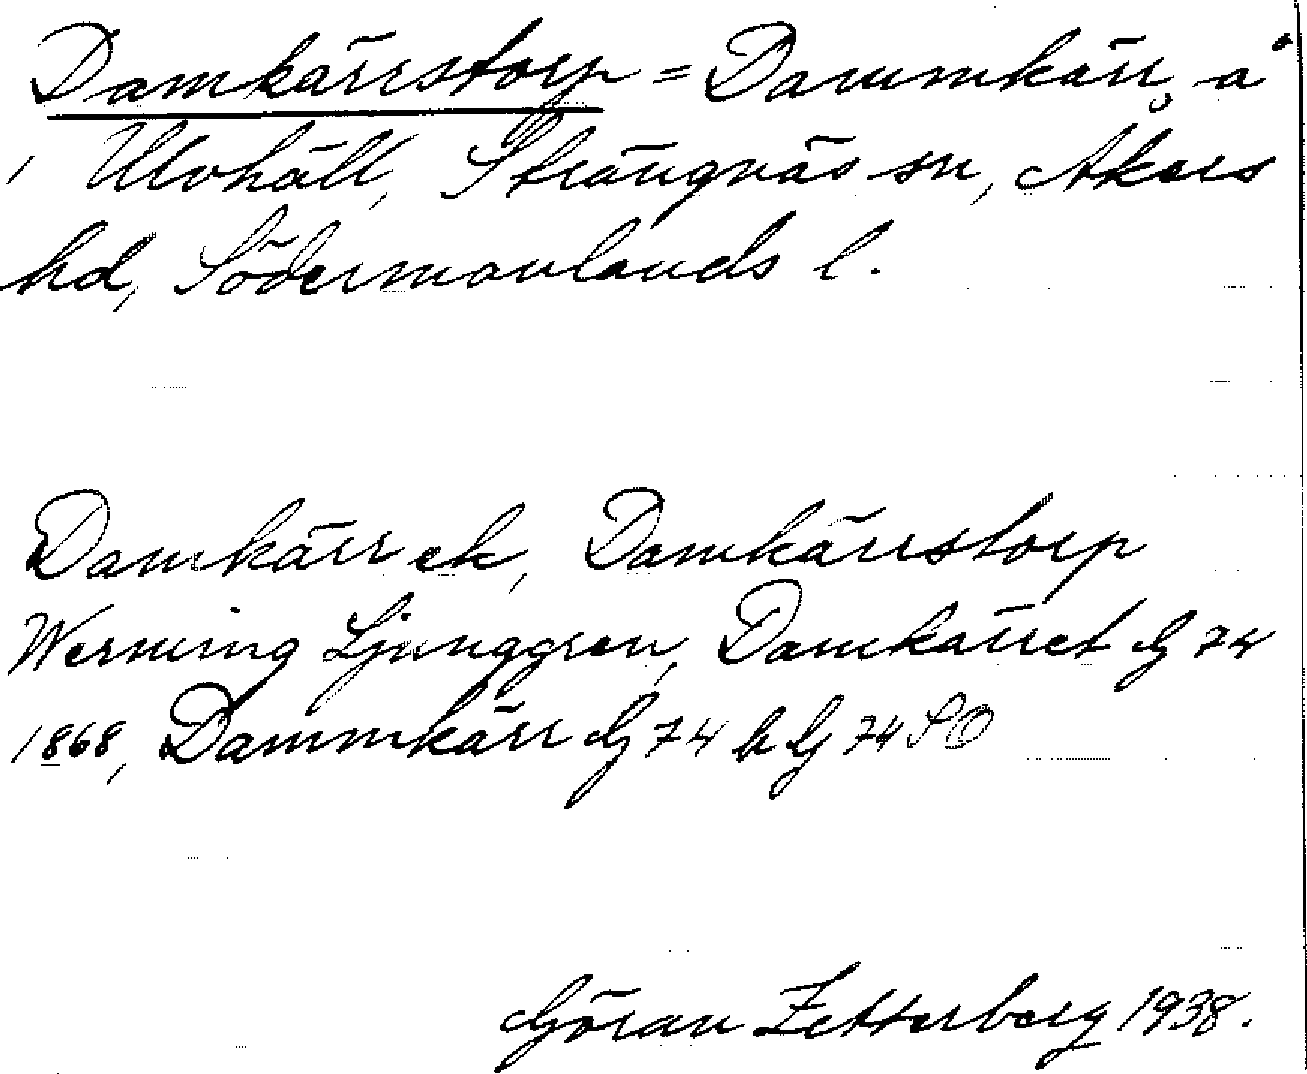 Damkärrstorp = Dammkärr, å
1 Ulvhäll, Strängnäs sn, Åkers
hd, Södermanlands l.
Damkärr ek, Damkärrstorp
Werming Ljunggren, Damkärret G 74
1868, Dammkärr G 74 h G 74 SO
Göran Zetterberg 1938.